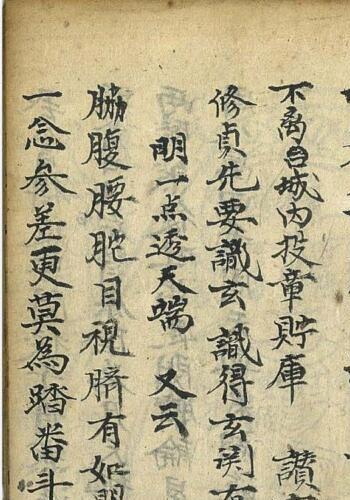 不离台城内投章貯庫　讃
修貞先要識玄識得玄関有
明一点透天端　又云
脇腹腰肫目視臍有如明
一念參差更莫為踏番斗